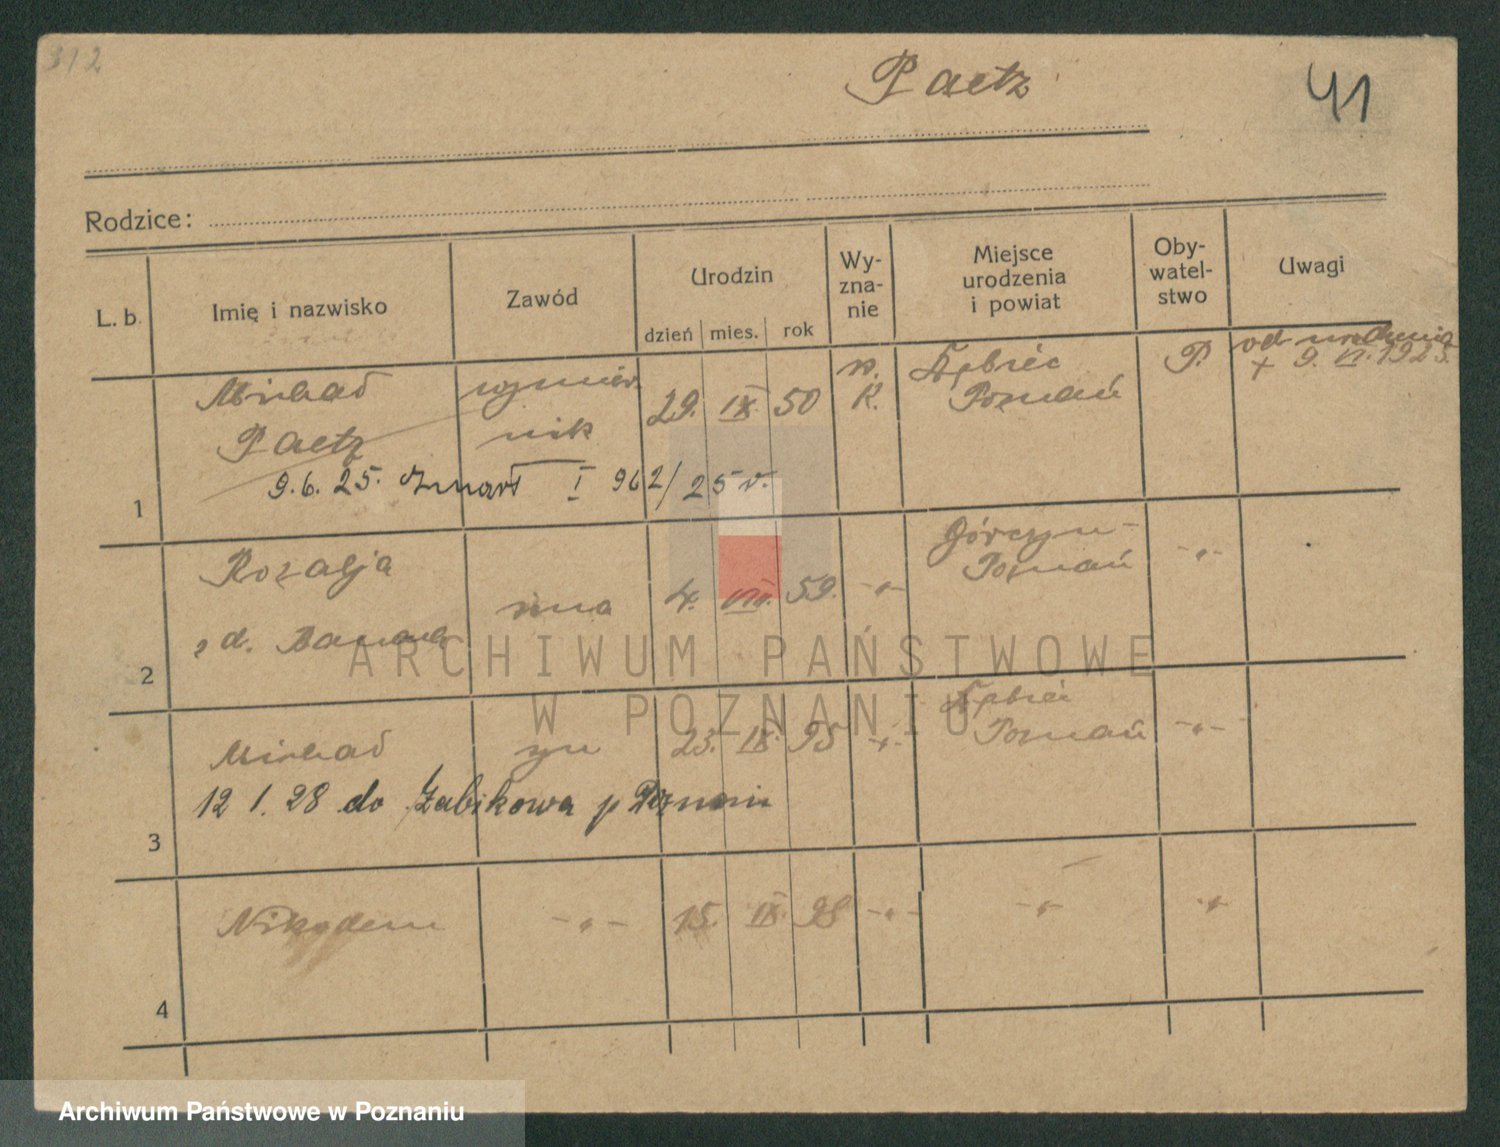 312
Paetz
41
Rodzice:
L. b. Imię i nazwisko Zawód Urodzin dzień mies. rok Wy-zna-nie Miejsce urodzenia i powiat Oby-watel-stwo Uwagi
od urodzenia
+ 9. VI. 1925.
1 Michał Paetz 29. IX 50 r. K. Żabiec Poznań P.
9. 6. 25. zmarł I 962/25 r.
2 Rozalja z d. żona 4. VIII. 59. -„- Górczyn- Poznań -„-
3 Michał syn 23. IX. 95 -„- Poznań -„-
12 1. 28 do Żabikowa p Poznania
4 Nikodem -„- 15. IX 98 -„- -„- -„-
ARCHIWUM PAŃSTWOWE
W POZNANIU
Archiwum Państwowe w Poznaniu